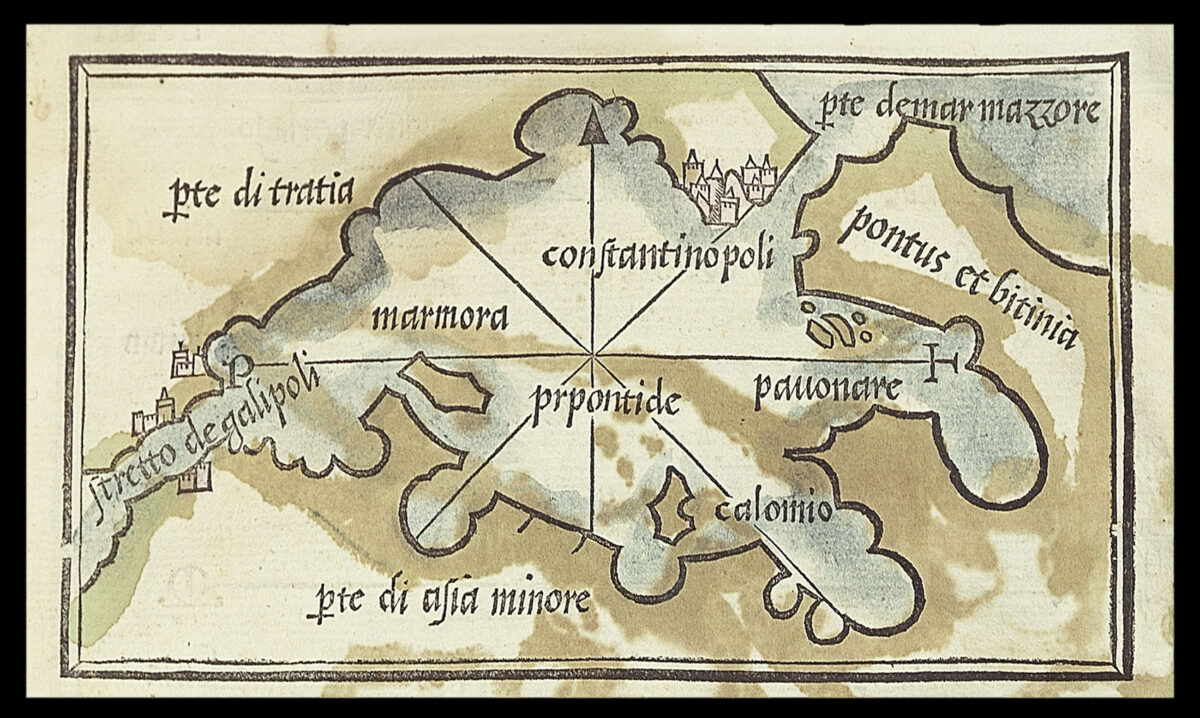 pte demar mazzore
pte di tratia
constantinopoli
pontus et bitinia
marmora
stretto de galipoli
prpontide
pauonare
calomio
pte di asia minore